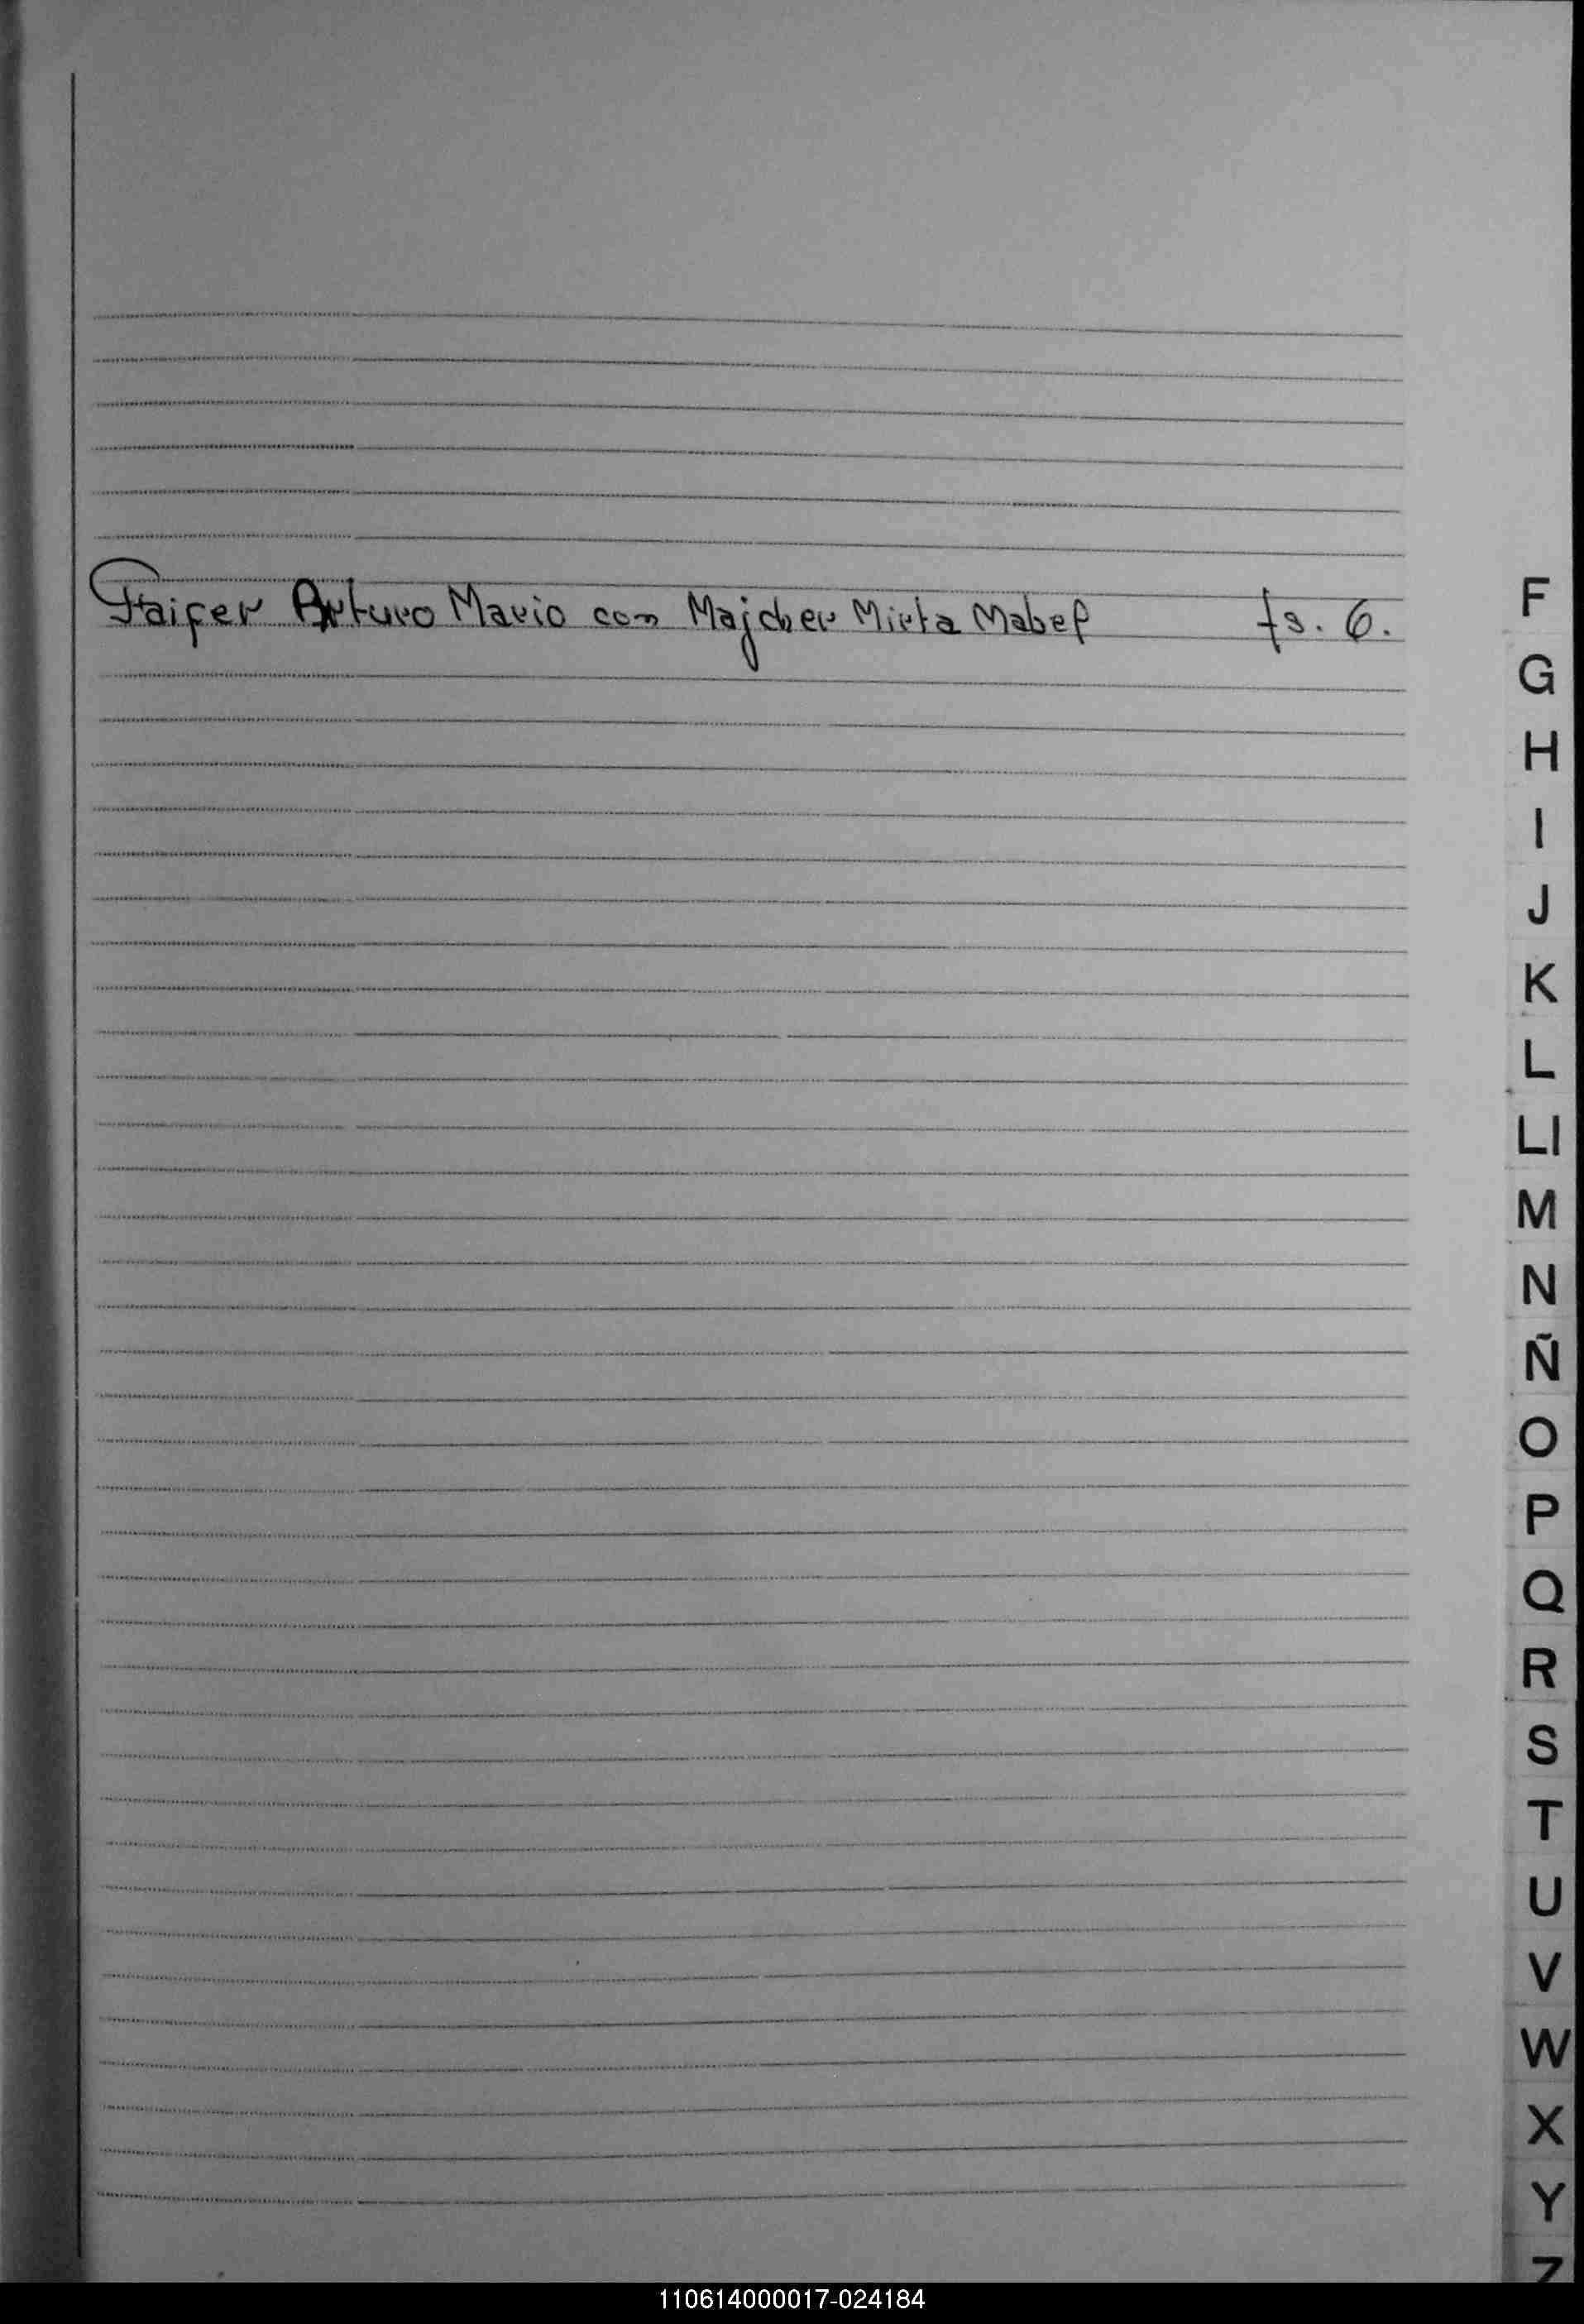 Faifer Arturo Mario con Majcher Mirta Mabel fs. 6.
F
G
H
I
J
K
L
Ll
M
N
Ñ
O
P
Q
R
S
T
U
V
W
X
Y
Z
110614000017-024184